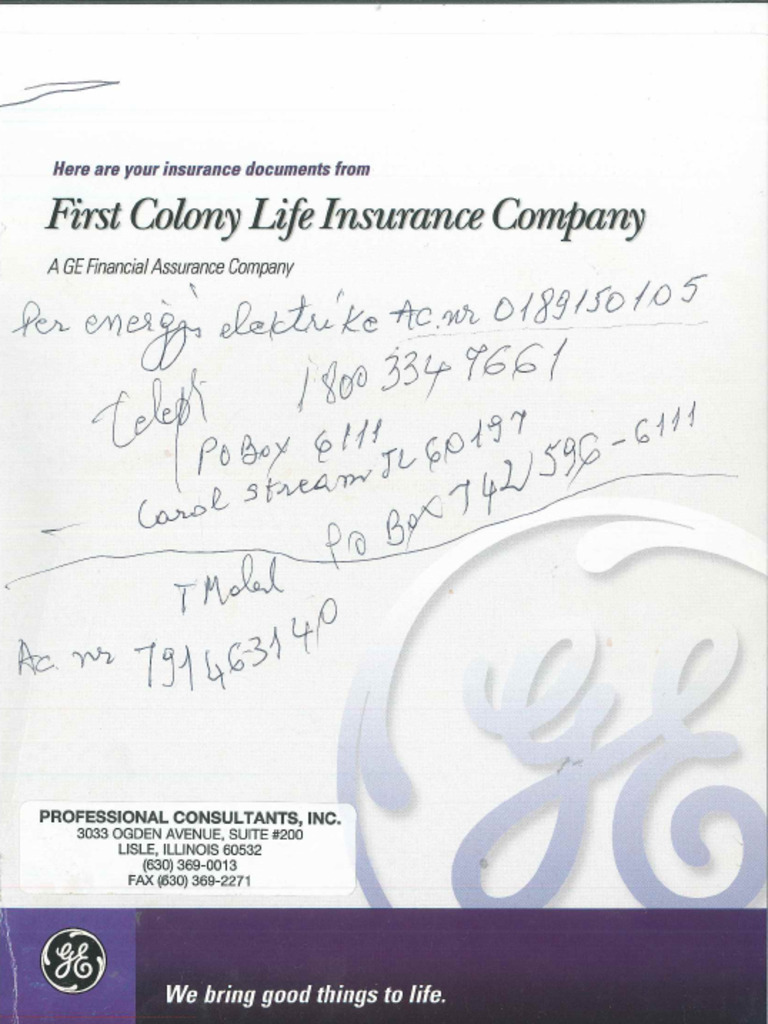 Here are your insurance documents from
First Colony Life Insurance Company
A GE Financial Assurance Company
Per energji elektrike Ac. nr 0189150105
Teleph 1800 334 7661
PO Box 6111
Carol Stream IL 60197
Po Box 742596-6111
T Mobil
Ac. nr 791463140
GE
PROFESSIONAL CONSULTANTS, INC.
3033 OGDEN AVENUE, SUITE #200
LISLE, ILLINOIS 60532
(630) 369-0013
FAX (630) 369-2271
GE
We bring good things to life.